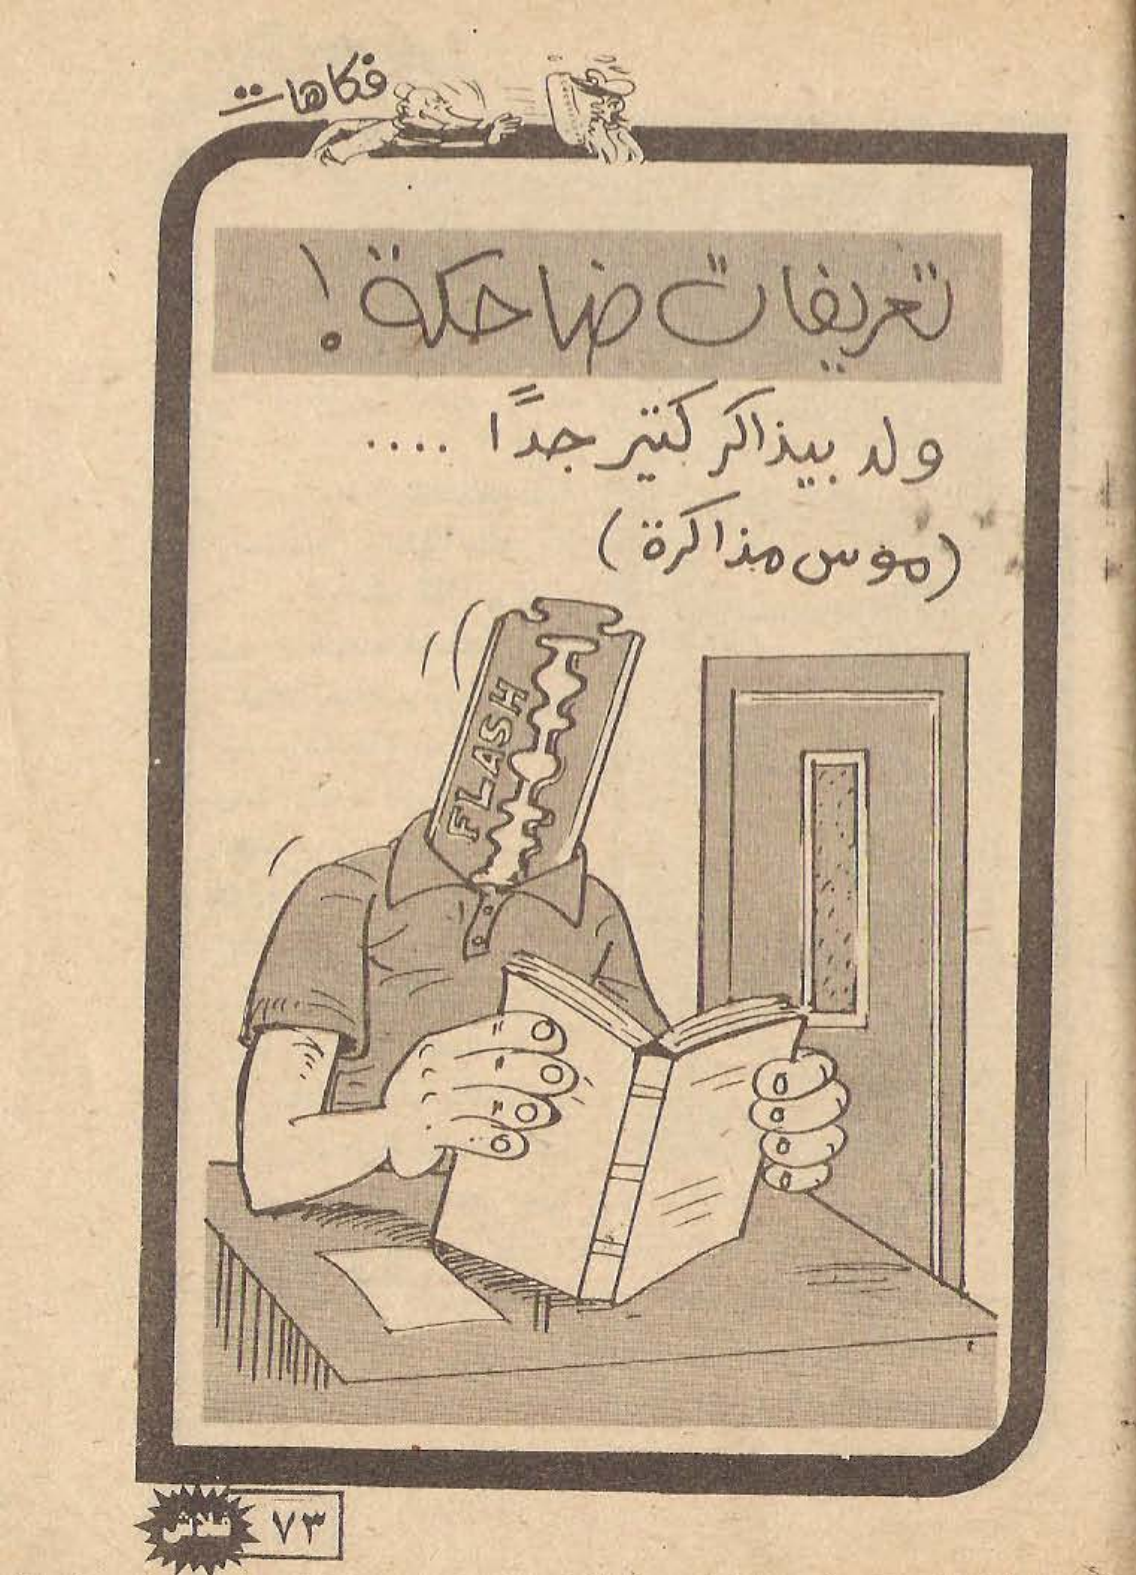 فكاهات
تعريفات ضاحكة !
ولد بيذاكر كتير جداً ....
(موس مذاكرة)
FLASH
فلاش ٧٣